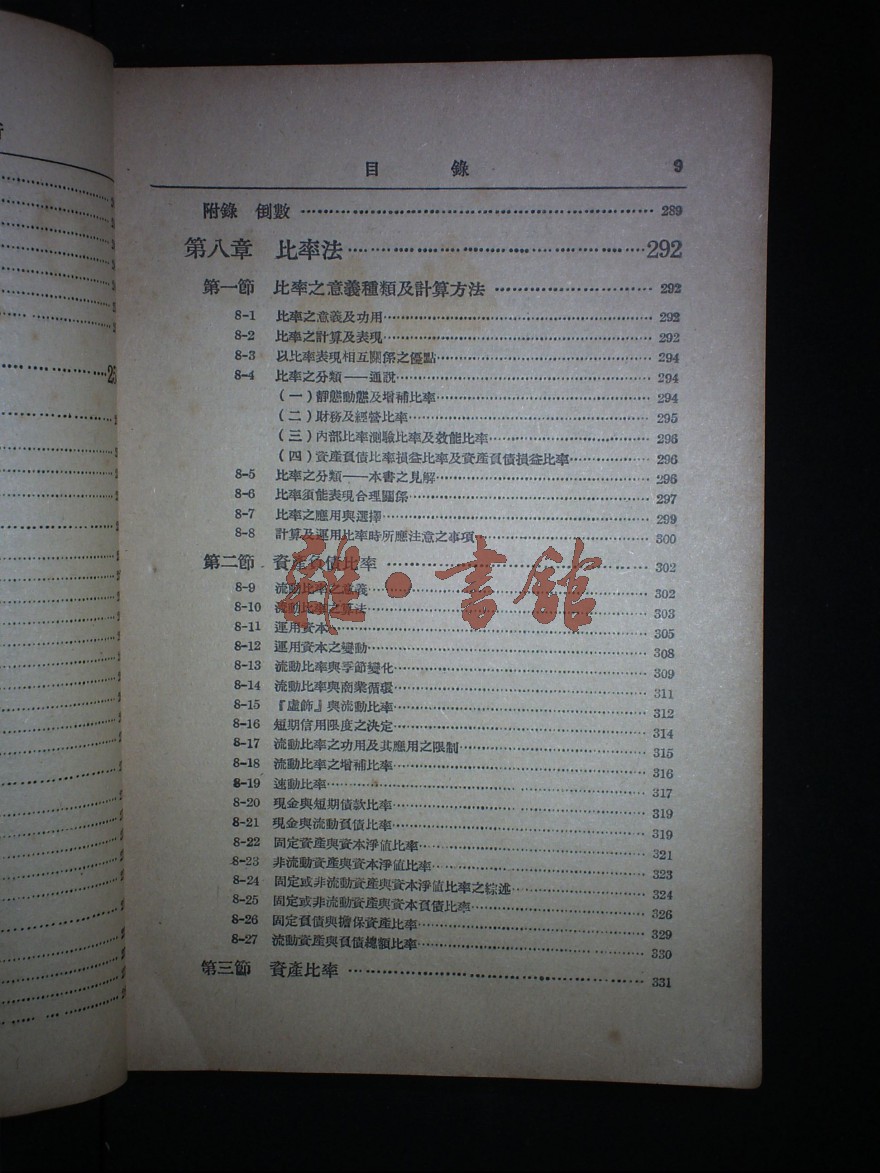 目錄 9
附錄 倒數 289
第八章 比率法 292
第一節 比率之意義種類及計算方法 292
8-1 比率之意義及功用 292
8-2 比率之計算及表現 292
8-3 以比率表現相互關係之優點 294
8-4 比率之分類——通說 294
(一)靜態動態及增補比率 294
(二)財務及經營比率 295
(三)內部比率測驗比率及效能比率 296
(四)資產負債比率損益比率及資產負債損益比率 296
8-5 比率之分類——本書之見解 296
8-6 比率須能表現合理關係 297
8-7 比率之應用與選擇 299
8-8 計算及運用比率時所應注意之事項 300
第二節 資產負債比率 302
8-9 流動比率之意義 302
8-10 流動比率之算法 303
8-11 運用資本 305
8-12 運用資本之變動 308
8-13 流動比率與季節變化 309
8-14 流動比率與商業循環 311
8-15 『虛飾』與流動比率 312
8-16 短期信用限度之決定 314
8-17 流動比率之功用及其應用之限制 315
8-18 流動比率之增補比率 316
8-19 速動比率 317
8-20 現金與短期債款比率 319
8-21 現金與流動負債比率 319
8-22 固定資產與資本淨值比率 321
8-23 非流動資產與資本淨值比率 323
8-24 固定或非流動資產與資本淨值比率之綜述 324
8-25 固定或非流動資產與資本負債比率 326
8-26 固定負債與擔保資產比率 329
8-27 流動資產與負債總額比率 330
第三節 資產比率 331
雜·書館